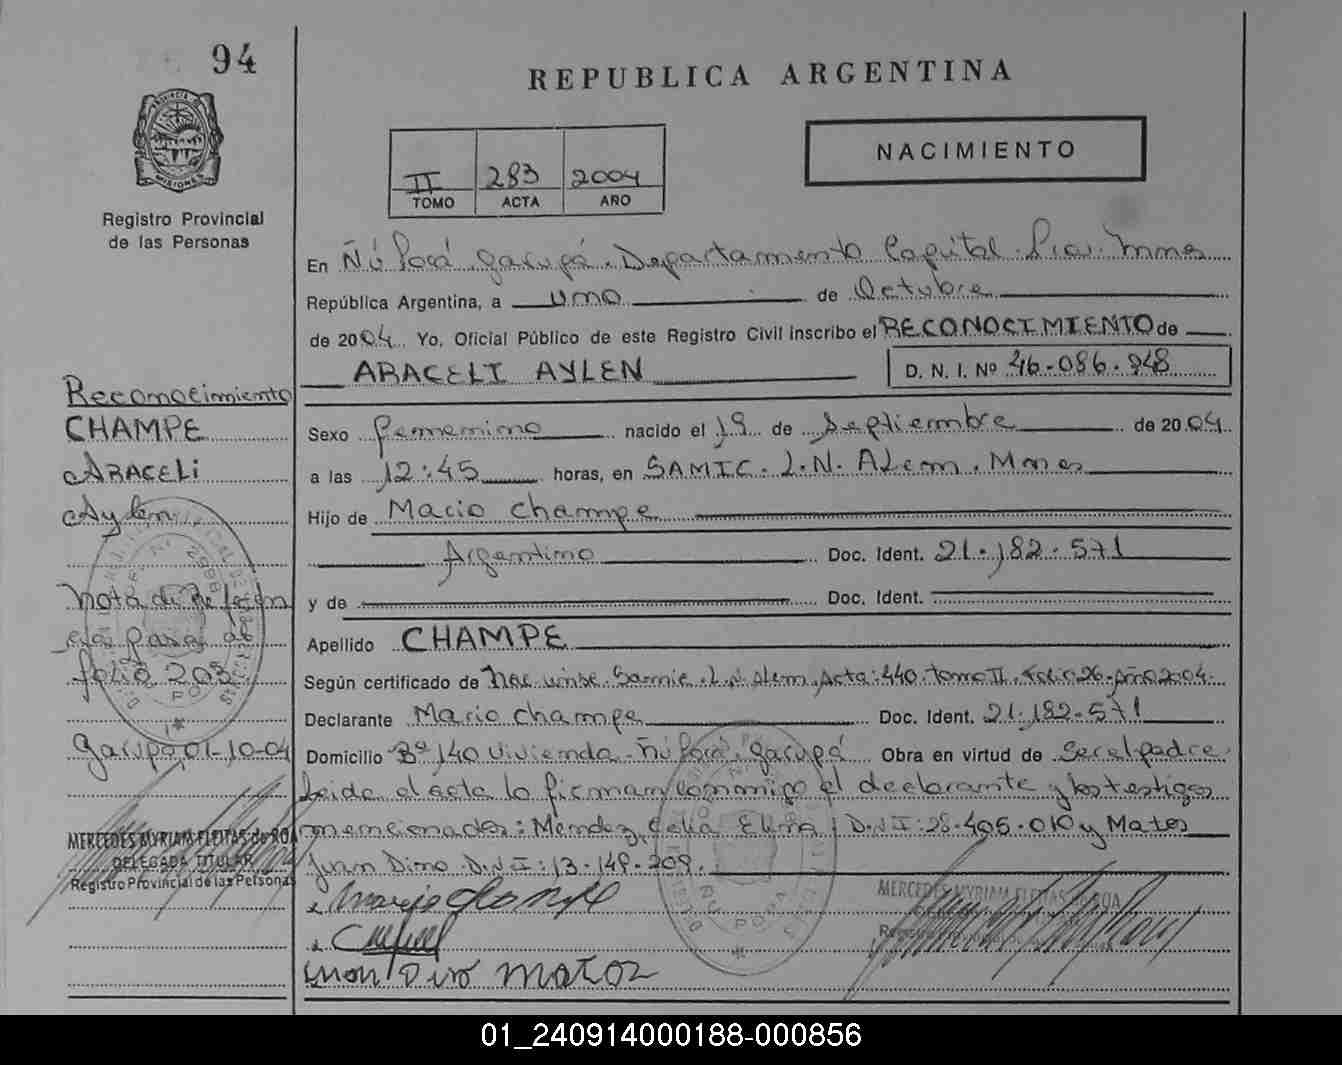 94
REPUBLICA ARGENTINA
PROVINCIA
MISIONES
Registro Provincial
de las Personas
II 283 2004
TOMO ACTA AÑO
NACIMIENTO
En Ñú Porá. Garupá. Departamento Capital. Prov. Mnes
República Argentina, a uno de Octubre
de 2004 Yo, Oficial Público de este Registro Civil inscribo el RECONOCIMIENTO de
ARACELI AYLEN
D. N. I. Nº 46-086-948
Sexo femenino nacido el 19 de Septiembre de 2004
a las 12:45 horas, en SAMIC. L.N. Alem. Mnes
Hijo de Mario Champe
Argentino Doc. Ident. 21-182-571
y de Doc. Ident.
Apellido CHAMPE
Según certificado de Nac. Samic. L.N. Alem. Acta: 440. Tomo II. Folio 26. Año 2004.
Declarante Mario Champe Doc. Ident. 21-182-571
Domicilio Bº 140 Vivienda. Ñú Porá. Garupá Obra en virtud de ser el padre
Leída el acta la firman conmigo el declarante y los testigos
mencionados: Méndez, Celia Elina, D.N.I: 28-405-010 y Matos
Juan Dino D.N.I: 13-149-209.
MERCEDES MYRIAM FLEITAS de ROA
Juan Dino Matos
Reconocimiento
CHAMPE
ARACELI
Aylen
Nota de
pasa al
folio 203
Garupá, 01-10-04
MERCEDES MYRIAM FLEITAS de ROA
DELEGADA TITULAR
Registro Provincial de las Personas
01_240914000188-000856